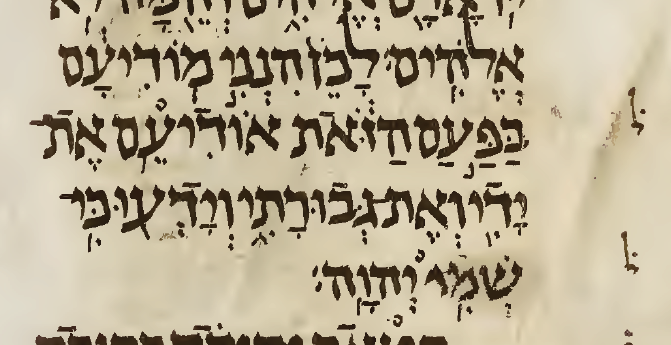 אֱלֹהִים׃ לָכֵן הִנְנִי מוֹדִיעָם
בַּפַּעַם הַזֹּאת אוֹדִיעֵם אֶת־
יָדִי וְאֶת־גְּבוּרָתִי וְיָדְעוּ כִּי־
שְׁמִי יְהוָה׃